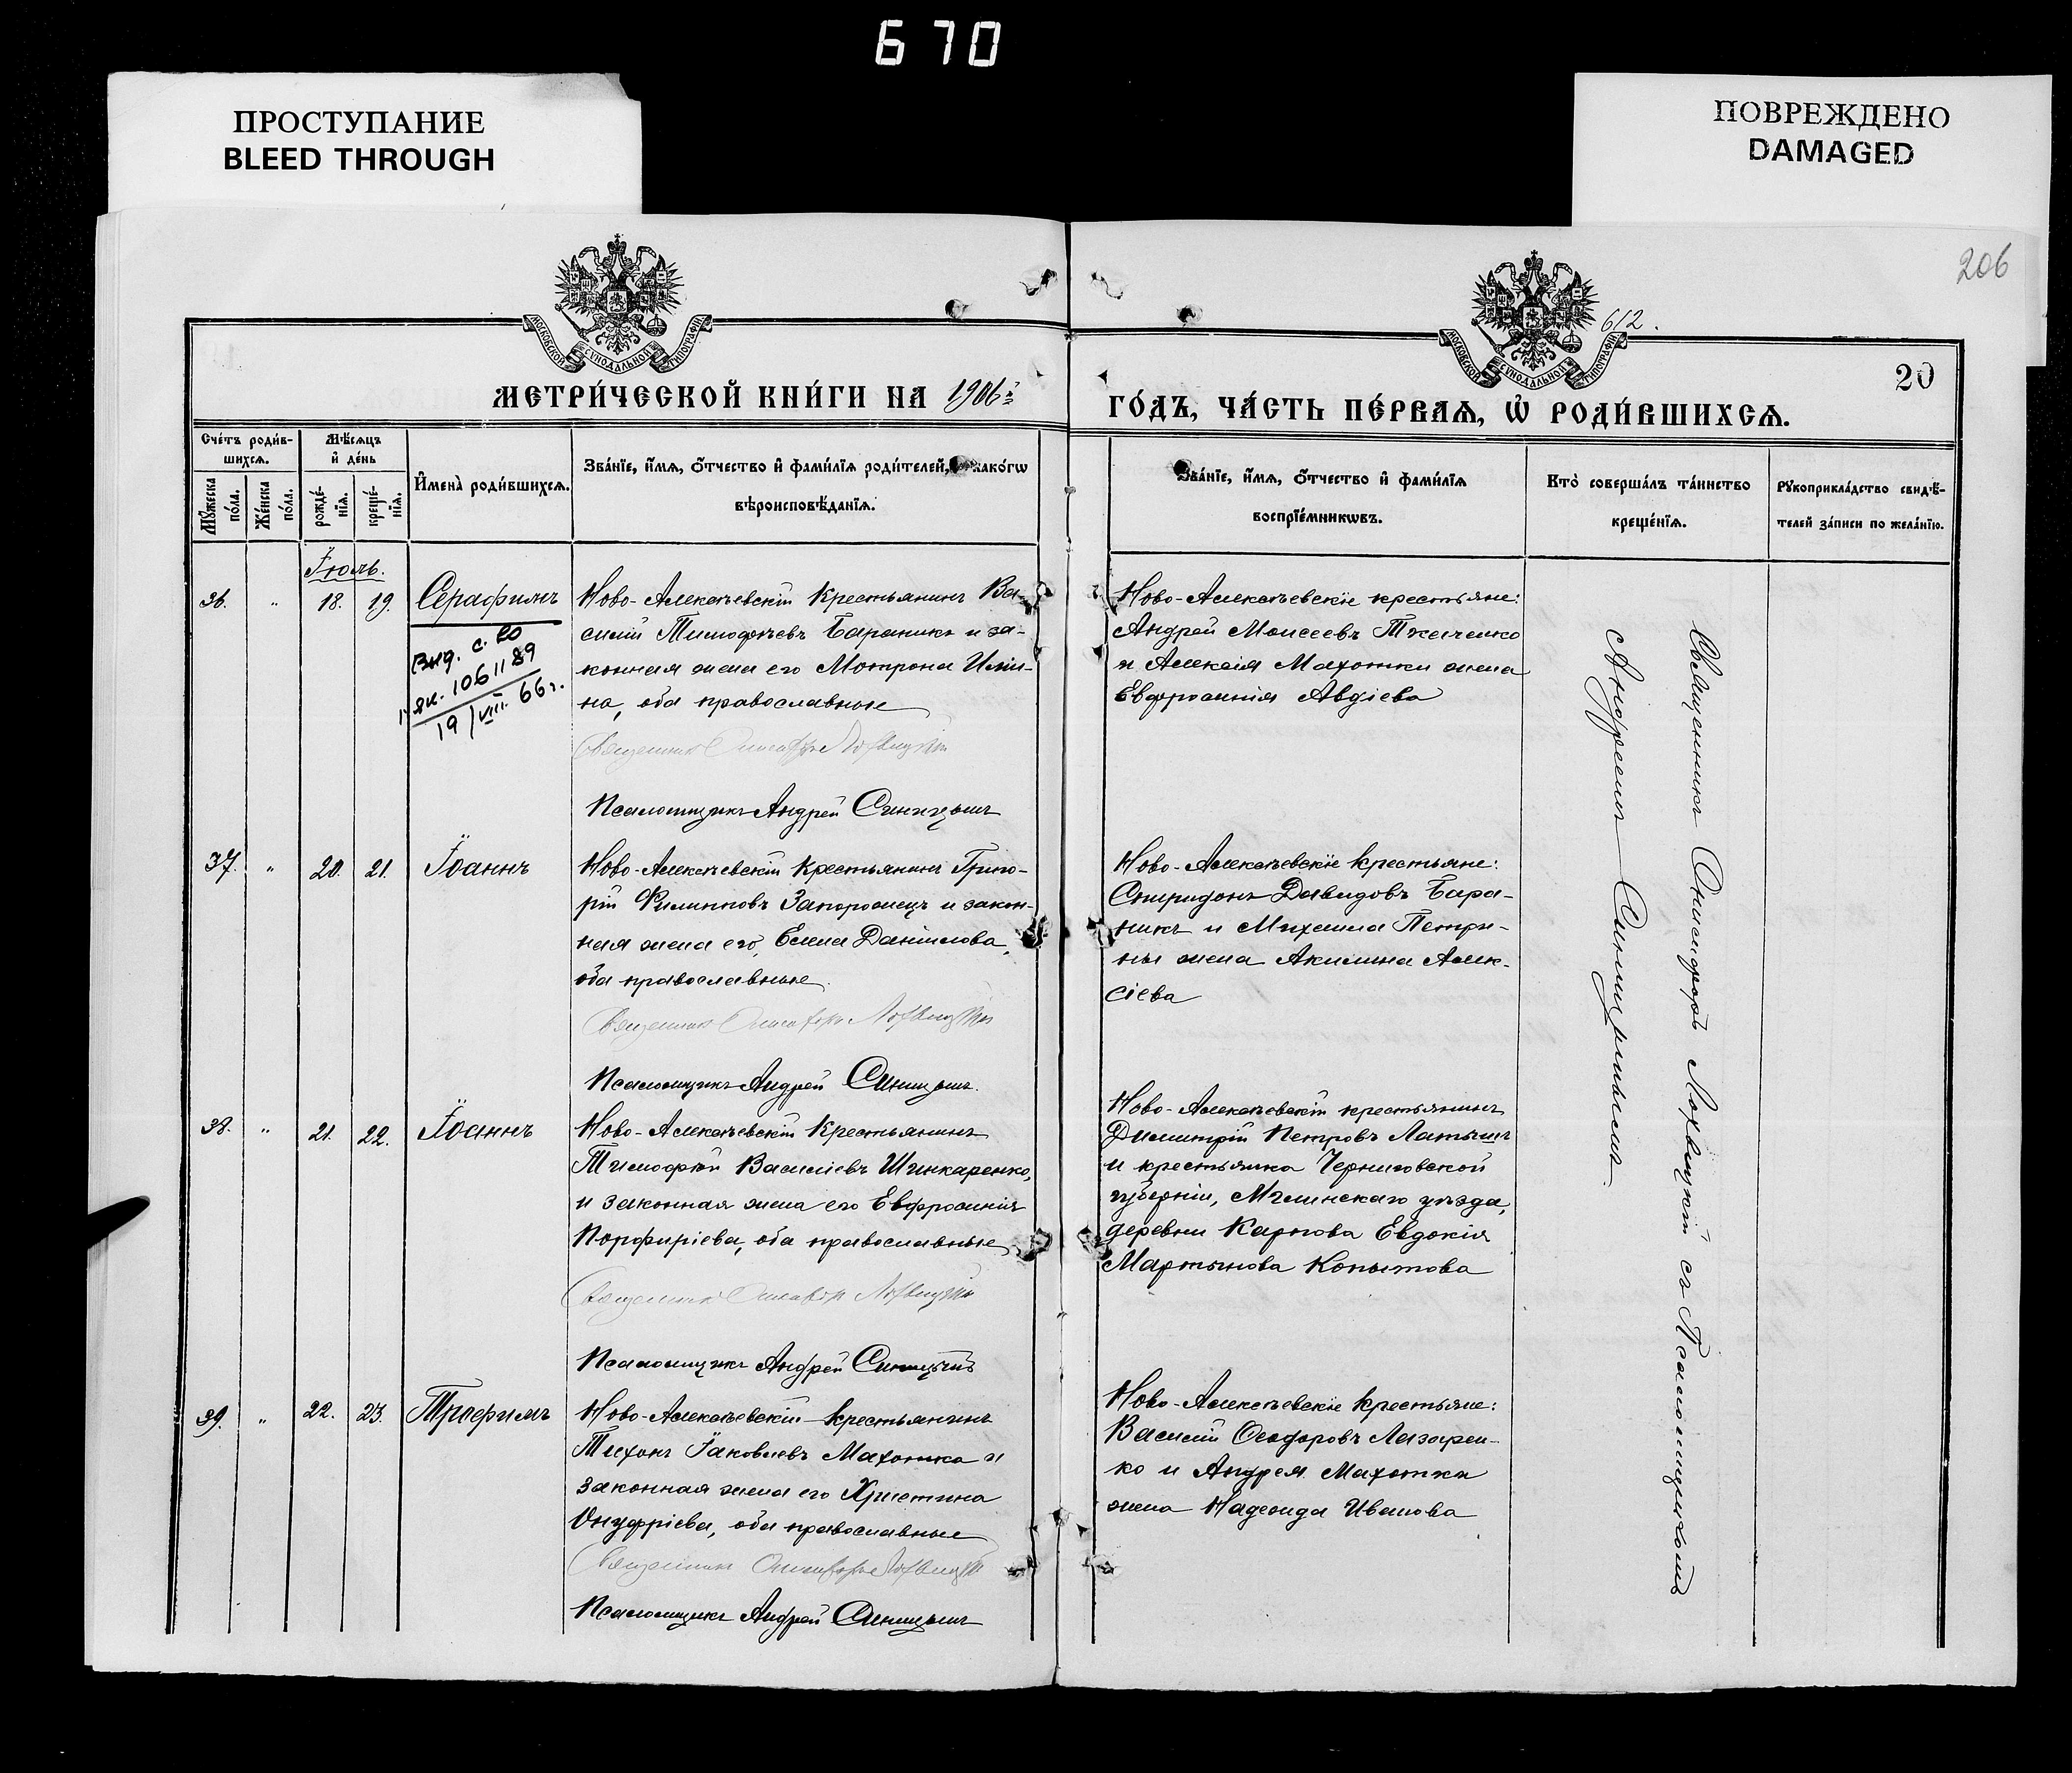 670
ПРОСТУПАНИЕ
BLEED THROUGH
ПОВРЕЖДЕНО
DAMAGED
206
612.
МОСКОВСКОЙ СѴНОДАЛЬНОЙ ТИПОГРАФІИ
МОСКОВСКОЙ СѴНОДАЛЬНОЙ ТИПОГРАФІИ
20
МЕТРИ́ЧЕСКОЙ КНИ́ГИ НА 1906й
ГО́ДЪ, ЧА́СТЬ ПЕ́РВАѦ, Ѡ РОДИ́ВШИХСѦ.
Сче́тъ роди́в-
шихсѧ.
Мѣ́сѧцъ
и҆ де́нь
Мꙋ́жеска по́ла.
Же́нска по́ла.
рожде́-
нїѧ.
креще́-
нїѧ.
И҆мена̀ роди́вшихсѧ.
Зва́нїе, и҆́мѧ, ѻ҆́тчество и҆ фами́лїѧ роди́телей, како́гѡ
вѣроисповѣ́данїѧ.
Зва́нїе, и҆́мѧ, ѻ҆́тчество и҆ фами́лїѧ
воспрїе́мникѡвъ.
Кто̀ соверша́лъ та́инство
креще́нїѧ.
Рꙋкоприкла́дство свидѣ́-
телей за́писи по жела́нїю.
Іюль.
36. " 18. 19. Серафимъ
Выд. с. во
19/VIII 66 г.
Ново-Алексѣевскій крестьянинъ Ва-
силій Тимофѣевъ Бараникъ и за-
конная жена его Мотрона Или-
на, оба православные
Священникъ Онисифоръ Лохвицкій
Псаломщикъ Андрей Синицынъ
Ново-Алексѣевскіе крестьяне:
Андрей Моисеевъ Ткаченко
и Алексія Махотки жена
Евфросинія Авдіева
37. " 20. 21. Іоаннъ
Ново-Алексѣевскій крестьянинъ Григо-
рій Филипповъ Запорожецъ и закон-
ная жена его, Елена Даніилова,
оба православные.
Священникъ Онисифоръ Лохвицкій
Псаломщикъ Андрей Синицынъ.
Ново-Алексѣевскіе крестьяне:
Спиридонъ Давидовъ Бара-
никъ и Михаила Петри-
ны жена Акилина Алек-
сіева
38. " 21. 22. Іоаннъ
Ново-Алексѣевскій крестьянинъ
Тимофей Василіевъ Шинкаренко,
и законная жена его Евфросинія
Порфиріева, оба православные
Священникъ Онисифоръ Лохвицкій
Псаломщикъ Андрей Синицынъ
Ново-Алексѣевскій крестьянинъ
Димитрій Петровъ Латышъ
и крестьянка Черниговской
губерніи, Мглинскаго уѣзда,
деревни Карпова Евдокія
Мартынова Копытова
39. " 22. 23. Трофимъ
Ново-Алексѣевскій крестьянинъ
Тихонъ Іаковлевъ Махотка и
законная жена его Христина
Онуфріева, оба православные
Священникъ Онисифоръ Лохвицкій
Псаломщикъ Андрей Синицынъ
Ново-Алексѣевскіе крестьяне:
Василій Ѳеодоровъ Лазарен-
ко и Андрея Махотки
жена Надежда Иванова
Священникъ Онисифоръ Лохвицкій съ Псаломщикомъ
Андреемъ Синицынымъ.